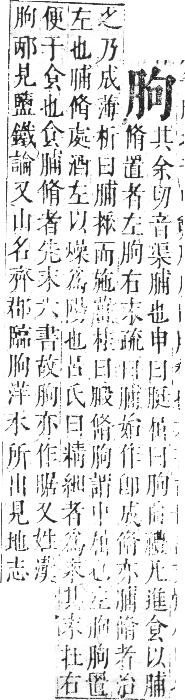 胊其余切音渠脯也申曰脡屈曰胊曲禮凡進食以脯
脩置者左胊右末疏曰脯始作卽成脩亦脯脩者治
之乃成薄析曰脯捶而施薑桂曰腶脩胊謂中屈也左胊胊置
左也脯脩處酒左以燥爲陽也呂氏曰精細者爲末其末在右
便于食也食脯脩者先末六書故胊亦作𦛳又姓漢
胊邴見鹽鐵論又山名齊郡臨胊洋水所出見地志